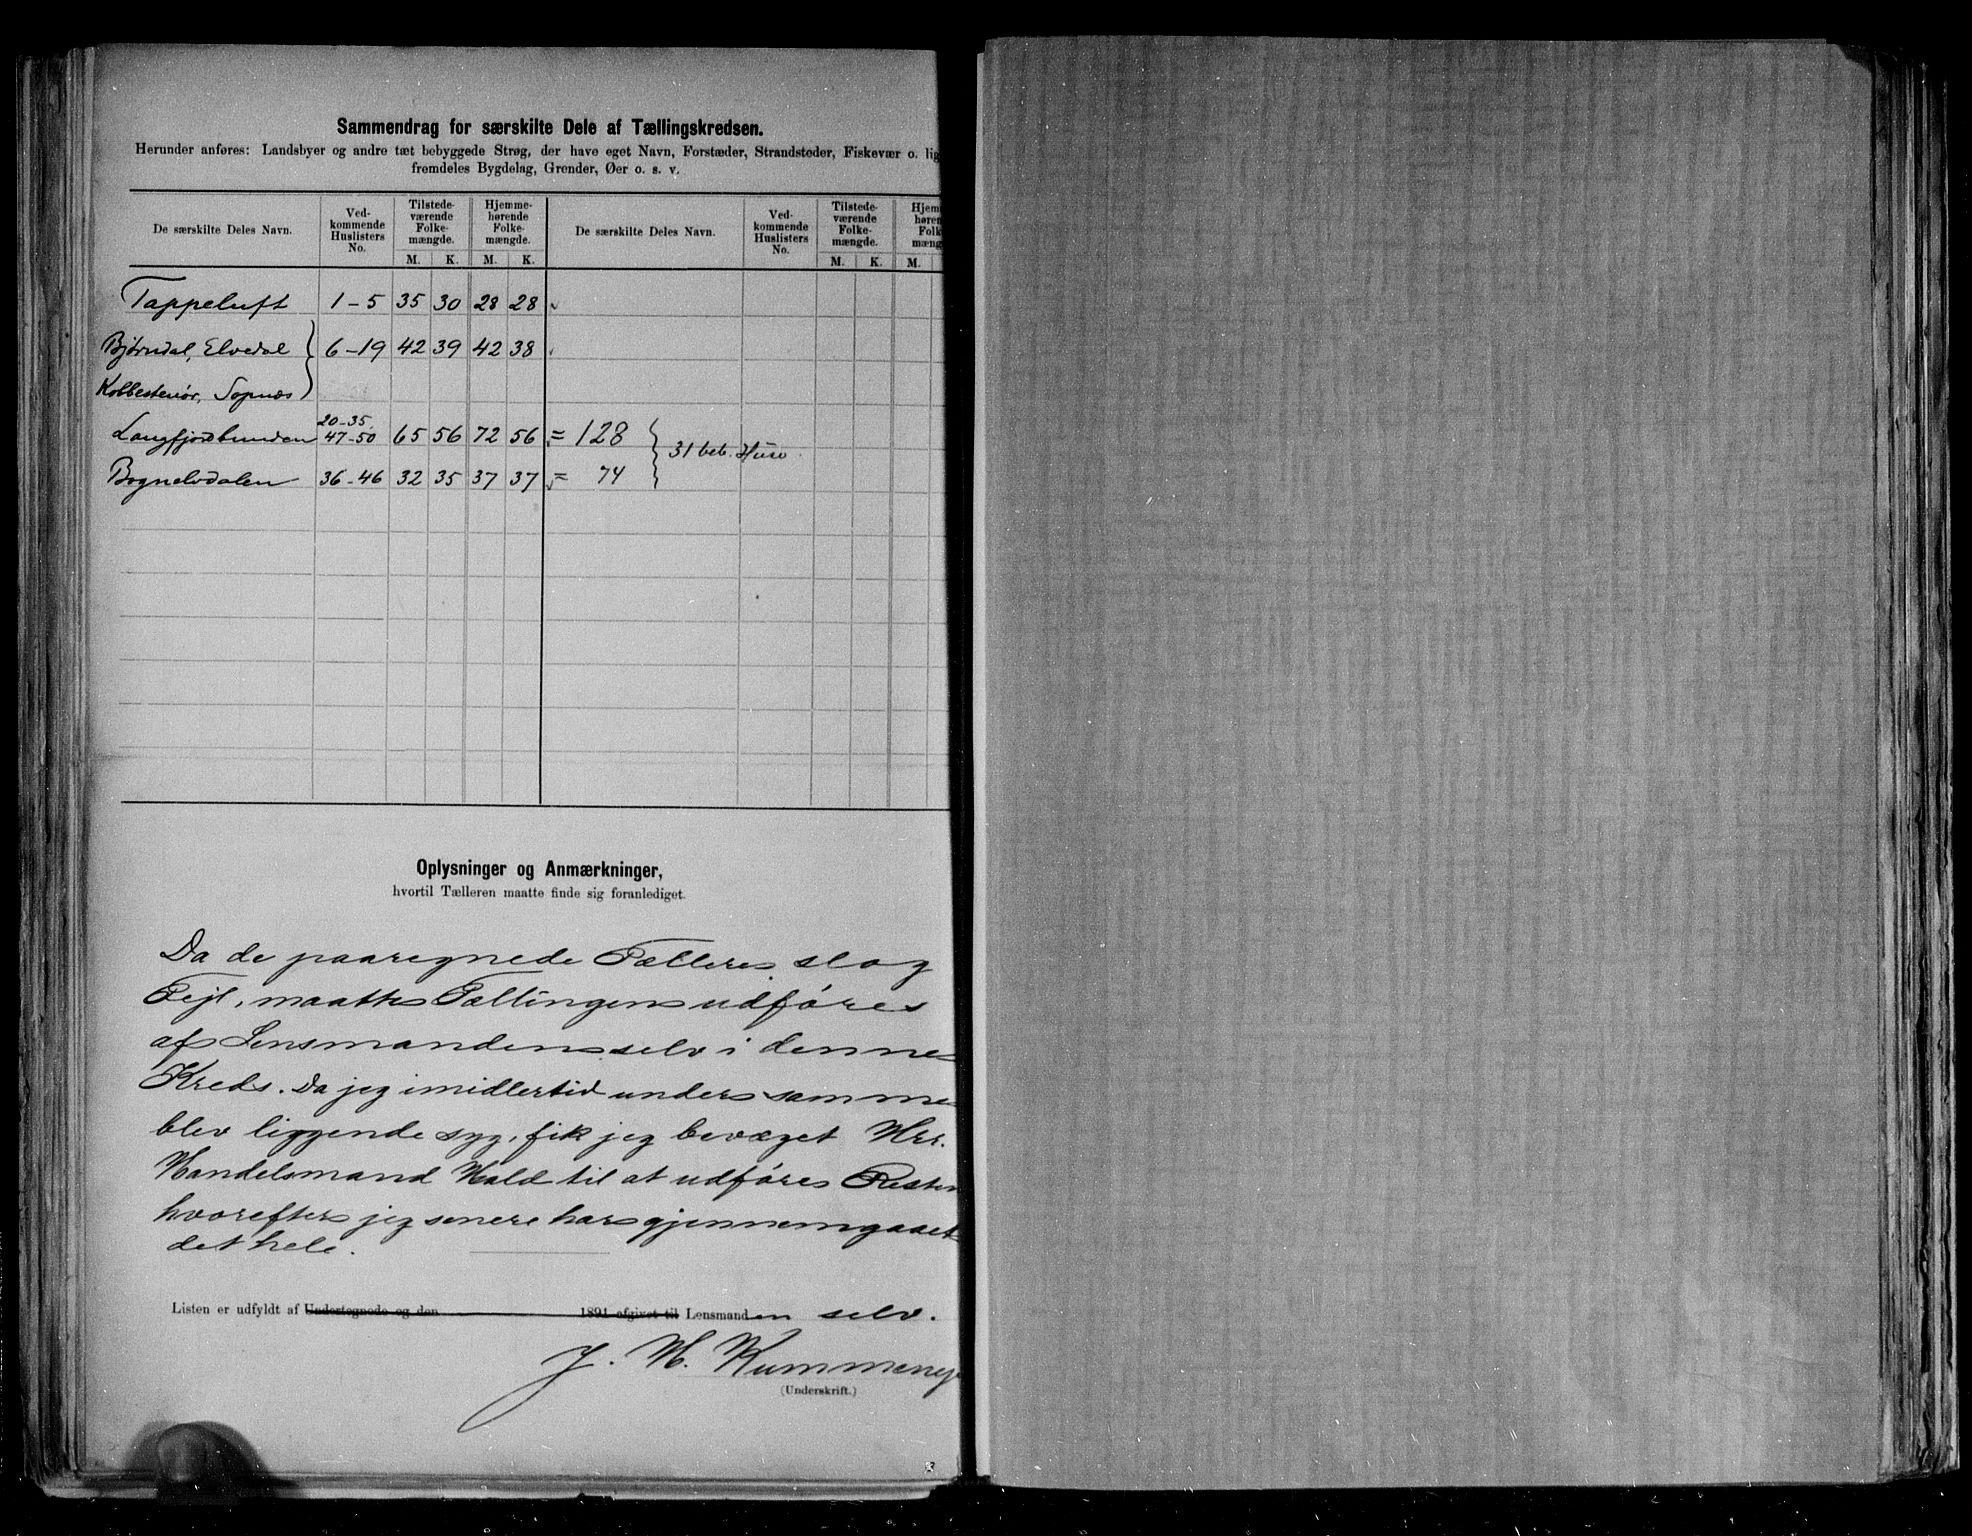 Sammendrag for særskilte Dele af Tællingskredsen.
Herunder anføres: Landsbyer og andre tæt bebyggede Strøg, der have eget Navn, Forstæder, Strandsteder, Fiskevær o. lig
fremdeles Bygdelag, Grender, Øer o. s. v.
De særskilte Deles Navn. Ved-kommende Huslisters No. Tilstede-værende Folke-mængde. Hjemme-hørende Folke-mængde. De særskilte Deles Navn. Ved-kommende Huslisters No. Tilstede-værende Folke-mængde. Hjem høren Folk mæng
M. K. M. K. M. K. M.
Tappeluft 1-5 35 30 28 28
Bjørndal, Elvedal 6-19 42 39 42 38
Kobbestenør, Sopnæs
20-35.
Langfjordbunden 47-50 65 56 72 56 = 128
31 beb. Huse
Bognelvdalen 36-46 32 35 37 37 = 74
Oplysninger og Anmærkninger,
hvortil Tælleren maatte finde sig foranlediget.
Da de paaregnede Tællere slog
Fejl, maatte Tællingen udføres
af Lensmanden selv i denne
Kreds. Da jeg imidlertid under samme
blev liggende syg, fik jeg bevæget Hr.
Handelsmand Hald til at udføre Resten
hvorefter jeg senere har gjennemgaaet
det hele.
Listen er udfyldt af Undertegnede og den 1891 afgivet til Lensmanden selv.
J. H. Kummeneje
(Underskrift.)